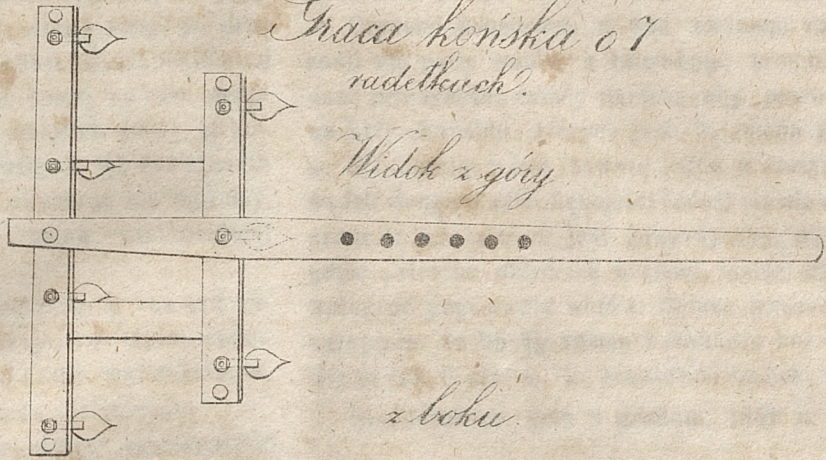 Graca końska o 7
radełkach.
Widok z góry
z boku.